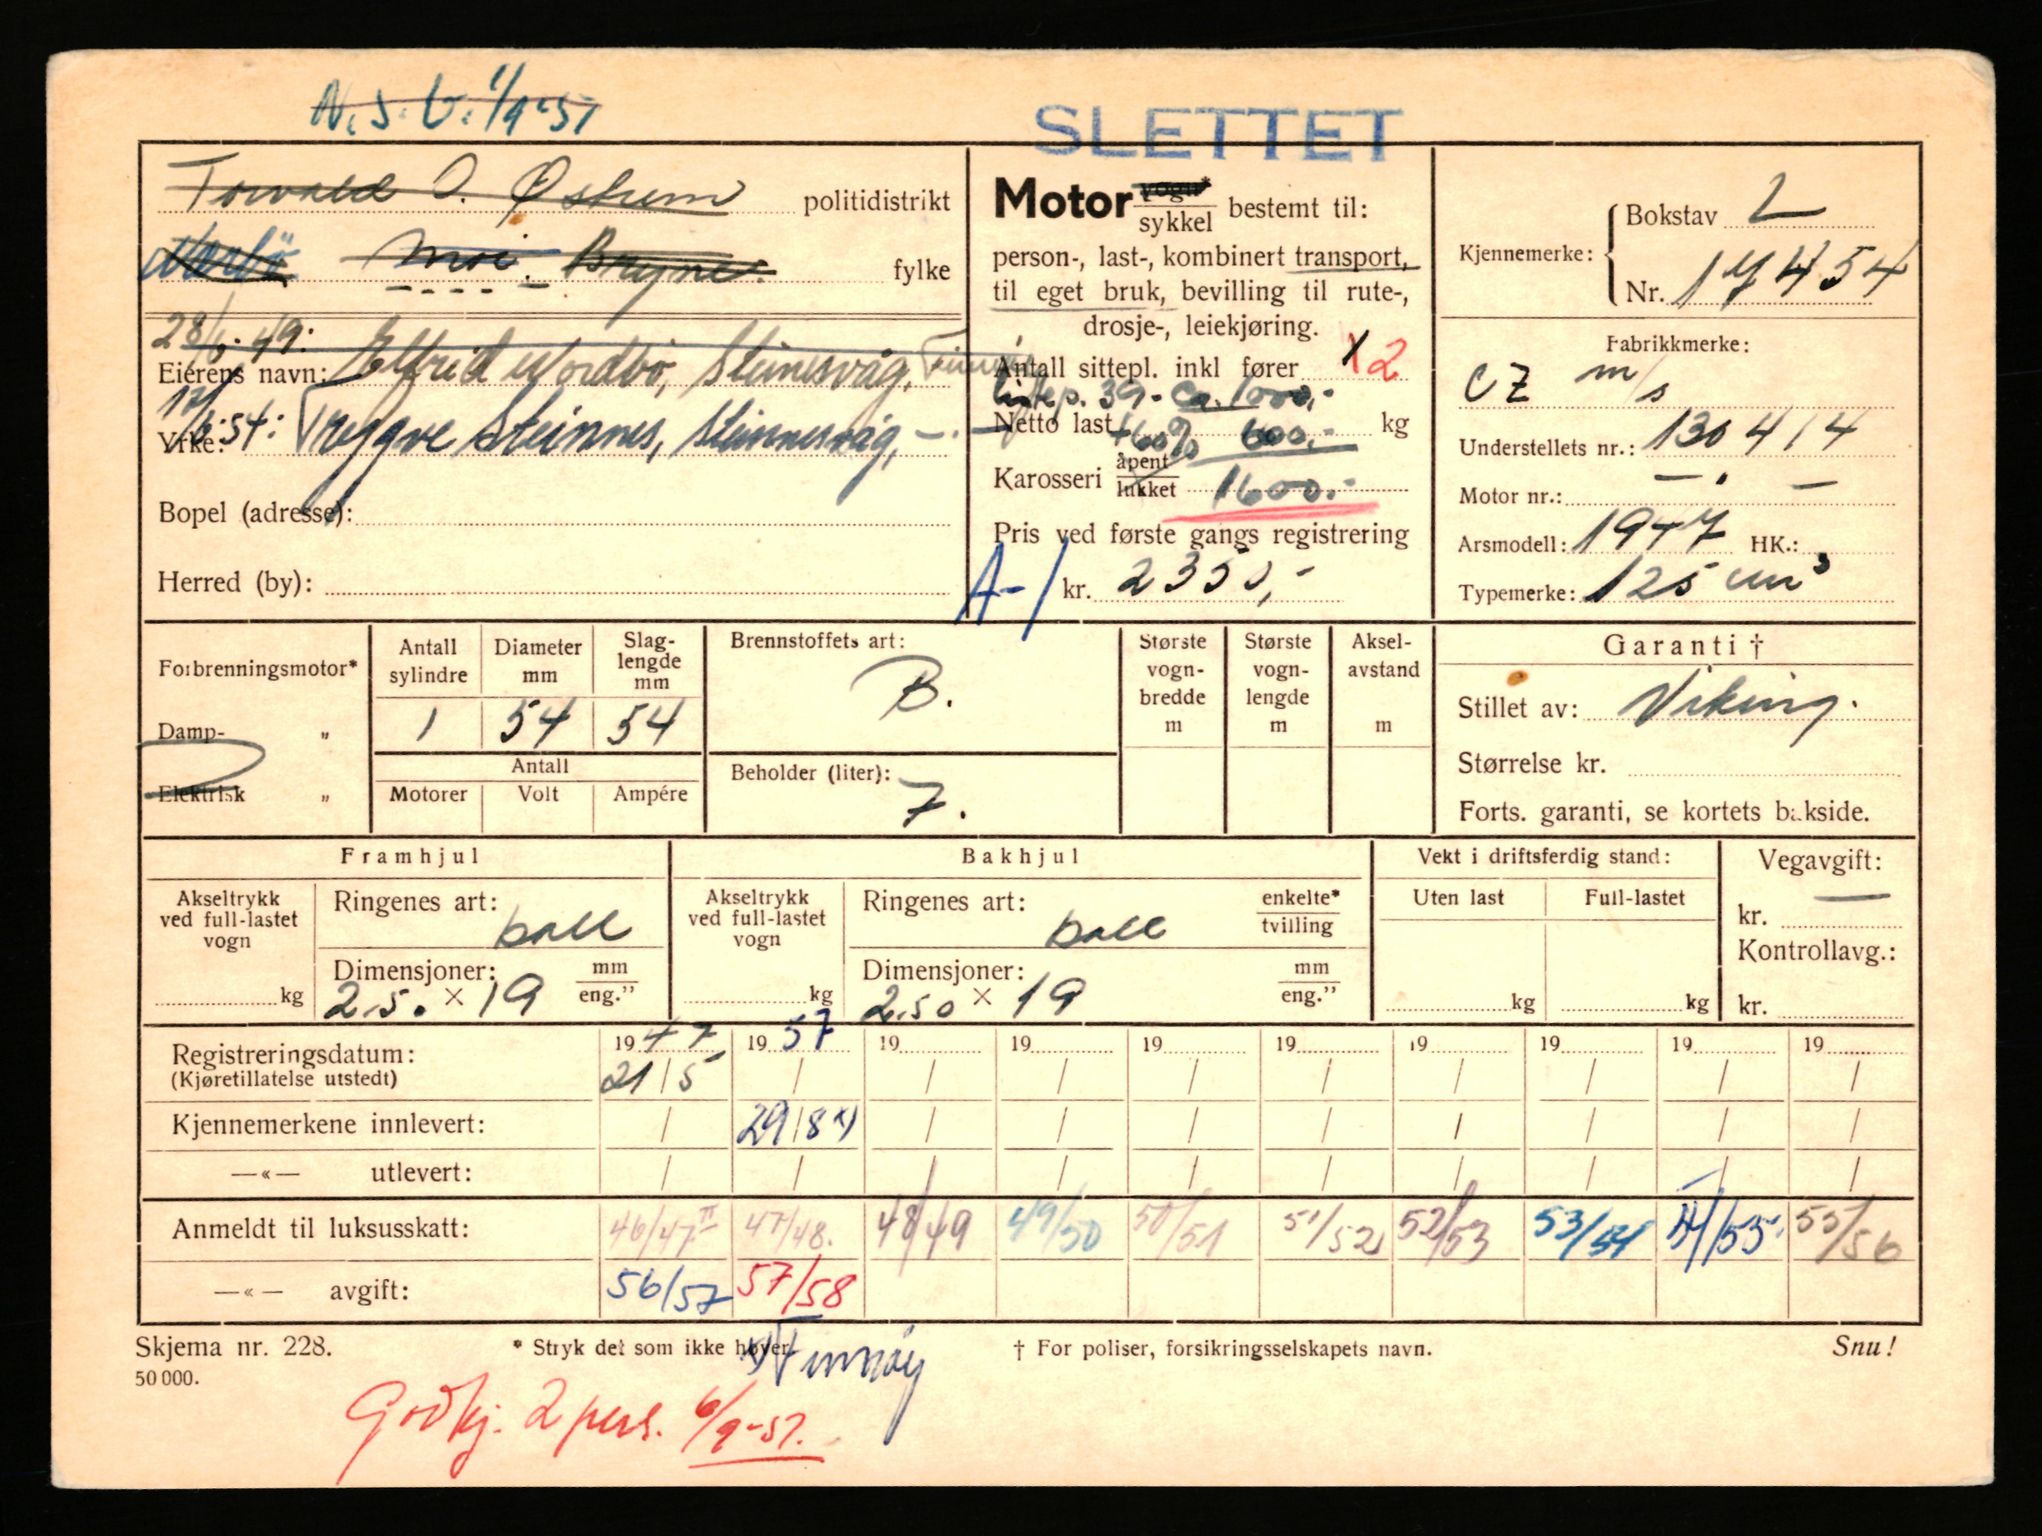 N.S.U. 1/9-51
SLETTET
Torvald O. Østrem politidistrikt
Moi. Bryne. fylke
28/6-49: Elfrid Nordbø, Steinesvåg,
Eierens navn:
17/6-54: Tryggve Steinnes, Steinnesvåg,
Yrke:
Bopel (adresse):
Herred (by):
Motor vogn*
sykkel bestemt til:
person-, last-, kombinert transport,
til eget bruk, bevilling til rute-,
drosje-, leiekjøring.
Antall sittepl. inkl fører 1 2
Listep. 39 - ca. 1000,-
Netto last +60% 600,- kg
Karosseri åpent
lukket 1600.-
Pris ved første gangs registrering
A-1 kr. 2350,-
Kjennemerke: Bokstav L
Nr. 17454
Fabrikkmerke:
CZ m/s
Understellets nr.: 130414
Motor nr.: — . —
Arsmodell: 1947 HK.:
Typemerke: 125 cm³
Forbrenningsmotor*
Damp- „
Elektrisk „
Antall sylindre Diameter mm Slag-lengde mm
1 54 54
Antall
Motorer Volt Ampére
Brennstoffets art:
B.
Beholder (liter):
7.
Største vogn-bredde m
Største vogn-lengde m
Aksel-avstand m
Garanti †
Stillet av: Viking.
Størrelse kr.
Forts. garanti, se kortets bakside.
Framhjul
Akseltrykk ved full-lastet vogn
kg
Ringenes art:
ball
Dimensjoner: mm
eng.”
2.50 × 19
Bakhjul
Akseltrykk ved full-lastet vogn
kg
Ringenes art: enkelte*
tvilling
ball
Dimensjoner: mm
eng.”
2.50 × 19
Vekt i driftsferdig stand:
Uten last Full-lastet
kg kg
Vegavgift:
kr. —
Kontrollavg.:
kr.
Registreringsdatum: 1947 1957 19 19 19 19 19 19 19 19
(Kjøretillatelse utstedt) 21/5 / / / / / / / / /
Kjennemerkene innlevert: / 29/8 x) / / / / / / / /
—«— utlevert: / / / / / / / / / /
Anmeldt til luksusskatt: 46/47 II 47/48. 48/49 49/50 50/51 51/52 52/53 53/54 54/55. 55/56
—«— avgift: 56/57 57/58
Skjema nr. 228. * Stryk det som ikke høver. † For poliser, forsikringsselskapets navn. Snu!
x) Finnøy
50 000.
Godkj. 2 pers. 6/9-51.